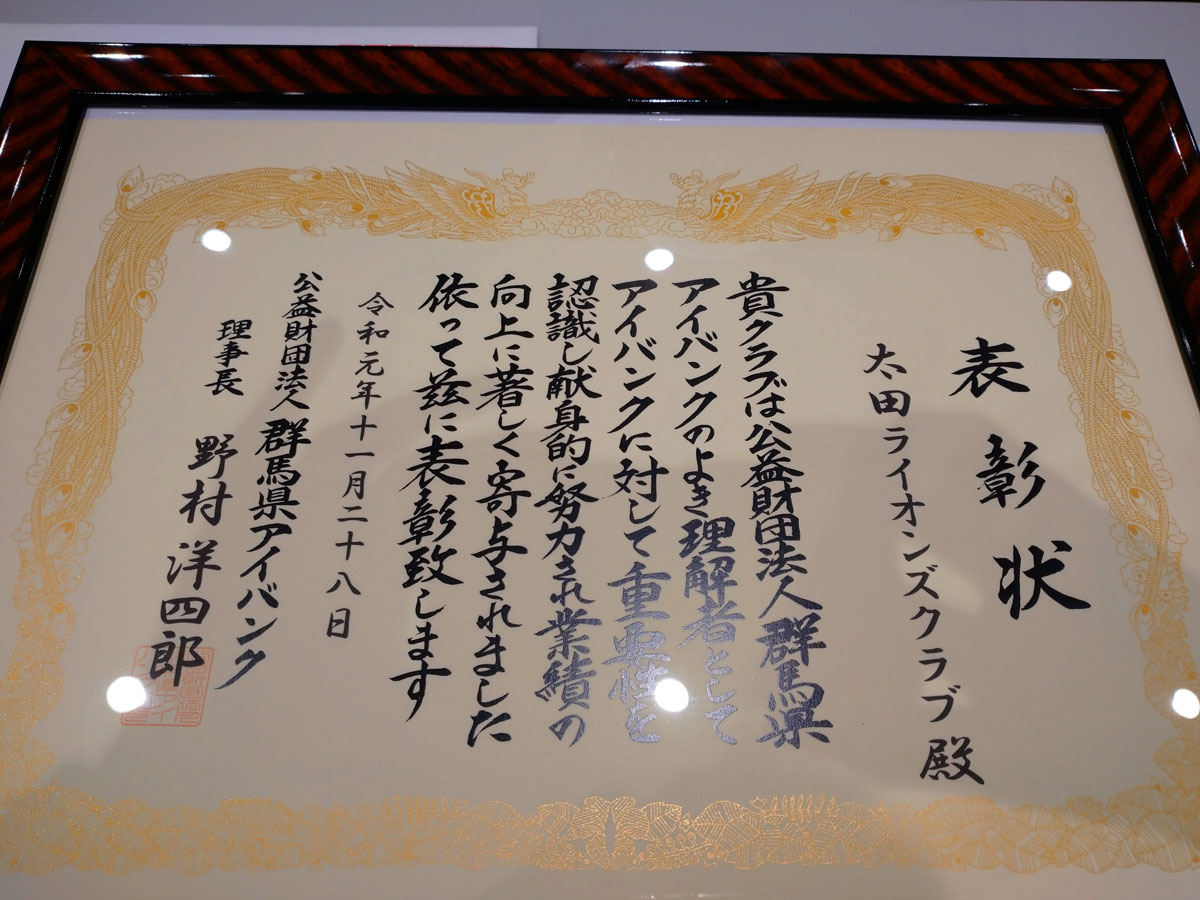 表彰状
太田ライオンズクラブ殿
貴クラブは公益財団法人群馬県
アイバンクのよき理解者として
アイバンクに対して重要性を
認識し献身的に努力され業績の
向上に著しく寄与されました
依って茲に表彰致します
令和元年十一月二十八日
公益財団法人群馬県アイバンク
理事長 野村洋四郎